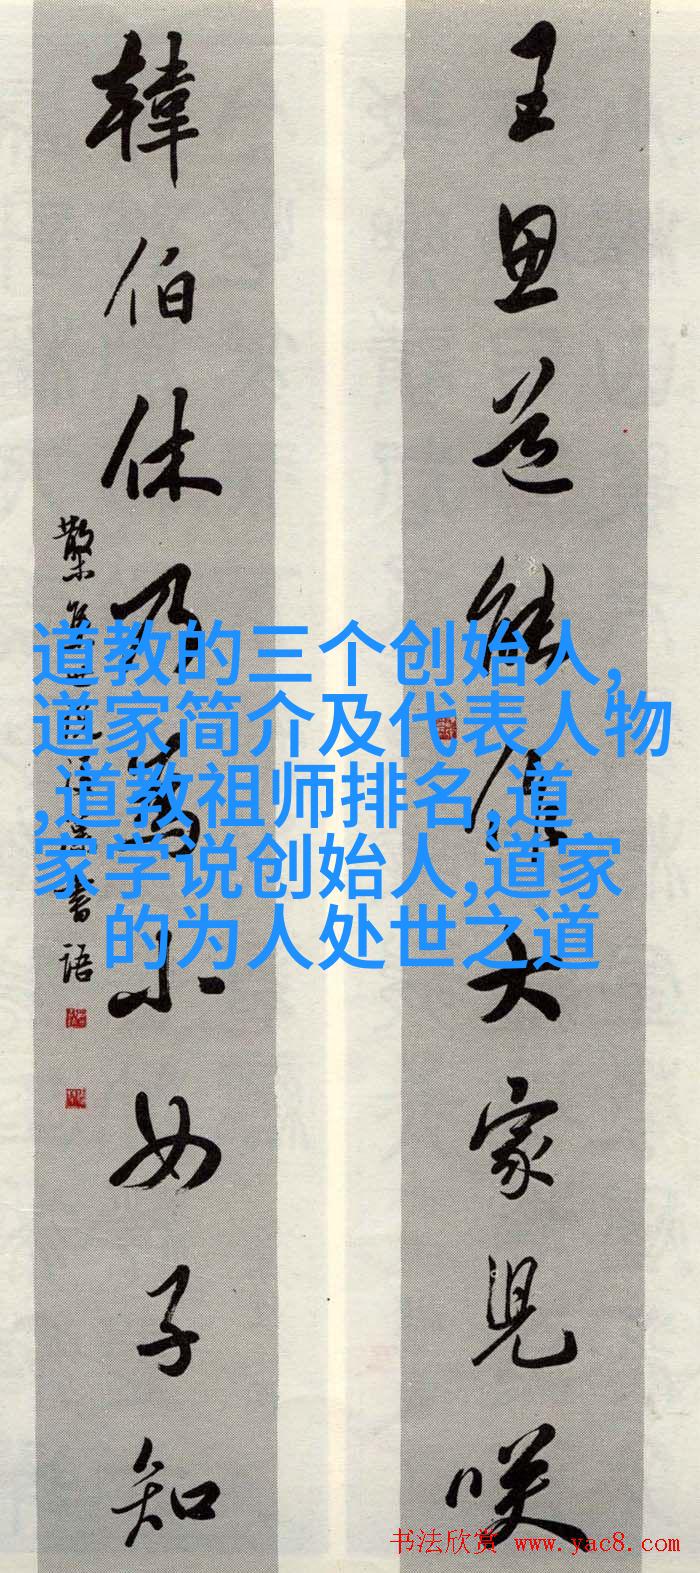 王思道能作大家兒咲
韓伯休乃爲小女子知
書語
道教的三个创始人,
道家简介及代表人物
,道教祖师排名,道
家学说创始人,道家
的为人处世之道
书法欣赏 www.yac8.com